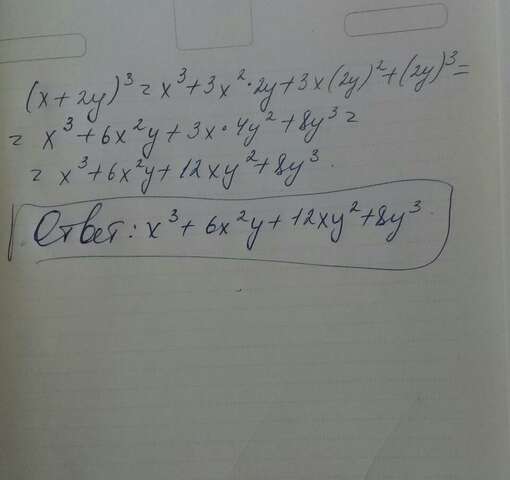 (x+2y)³ = x³+3x²·2y+3x(2y)²+(2y)³=
= x³+6x²y+3x·4y²+8y³=
= x³+6x²y+12xy²+8y³.
Ответ: x³+6x²y+12xy²+8y³.